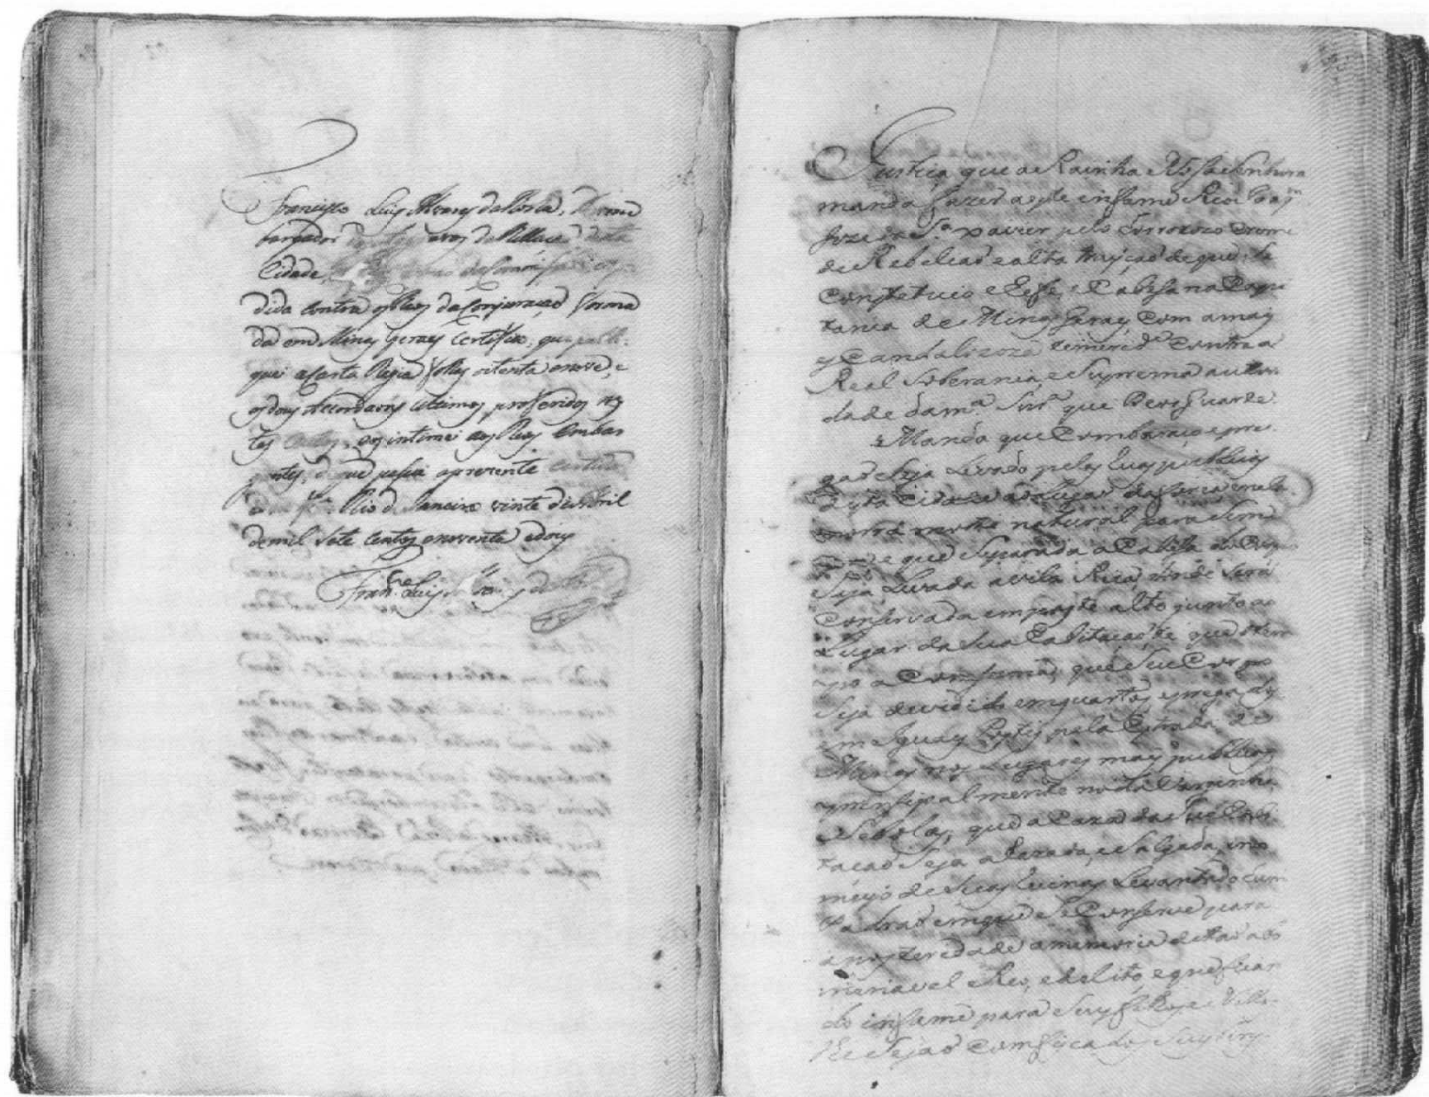 Francisco Luis Alvares da Rocha, Dezem
bargador dos aggravos da Rellaçaõ desta
Cidade, da Commissaõ expe
dida contra os Reos da Conjuraçaõ forma
da em Minas Geraes Certifico, que publi
quei a Carta Regia folhas oitenta e nove, e
os dous Accordaons ultimos proferidos nes
tes autos, e os intimei aos Reos Embar
gantes, de que passei a prezente Certidaõ
Rio de Janeiro vinte de Abril
de mil sete centos e noventa e dous
Fran.co Luis
Justiça que a Rainha Nossa Senhora
manda fazer a este infame Reo Joaq.m
Joze da S.a xavier pelo orrorozo crime
de Rebeliaõ e alta traiçaõ de que se
Constetuio Chefe, e Cabesa na Capi
tania de Minas Geraes, Com a mais
escandaloza temerid.e Contra a
Real Soberania, e Suprema autori
dade da m.ma Snr.a que Deos guarde.
Manda que Com baraço e pre
gaõ Seja Levado pelas Ruas publicas
desta Cidade ao Lugar da forca e nela
morra morte natural para Sem
pre e que Separada a Cabesa do Corpo
Seja Levada a vila Rica donde Será
Conservada em poste alto junto ao
Lugar da Sua abitaçaõ, e que o tem
po a Consuma, que Seu Corpo
Seja devidido em quartos, e pregados
em iguais Postes pela Estrada de
Minas nos Lugares mais publicos
e prinsipalmente no da Varginha
e Sebolas, que a Caza da Sua abi
tacaõ Seja arazada, e Salgada, e no
meyo de Suas Ruinas Levantado um
Padraõ em que Se Conserve para
a posteredade a memoria de taõ abo
minavel Reo, e delito, e que fican
do infame para Seus filhos, e Netos
lhe Sejaõ Comfiscados Seus bens